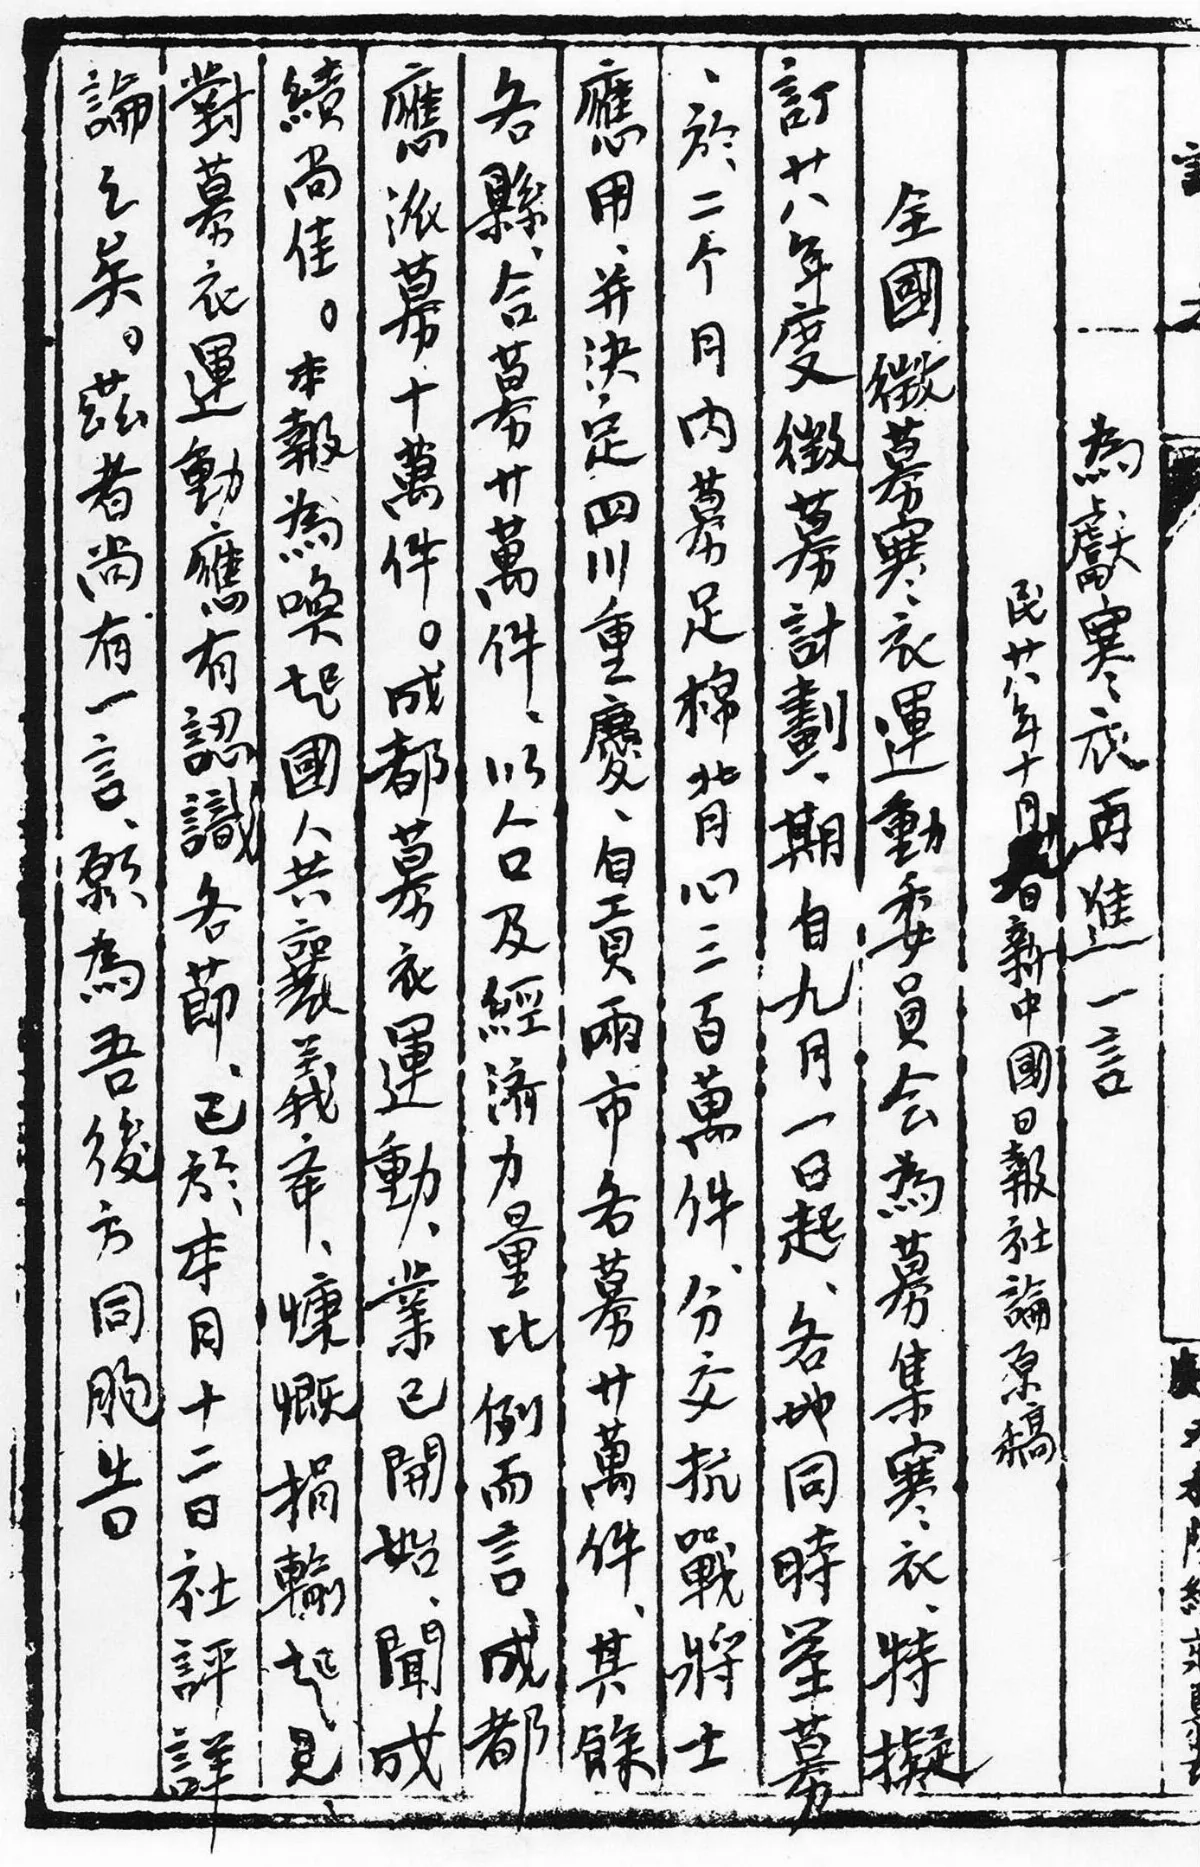 為獻寒衣再進一言
民廿八年十月九日新中國日報社論原稿
全國徵募寒衣運動委員会為募集寒衣、特擬
訂廿八年度徵募計劃、期自九月一日起、各地同時筆募
、於二个月內募足棉背心三百萬件、分交抗戰將士
應用、并決定四川重慶、自貢兩市各募廿萬件、其餘
各縣、合募廿萬件、以人口及經濟力量比例而言、成都
應派募十萬件。成都募衣運動、業已開始、聞成
績尚佳。本報為喚起國人共襄義舉、慷慨捐輸起見、
對募衣運動應有認識各節、已於本月十二日社評詳
論之矣。茲者尚有一言、願為吾後方同胞告